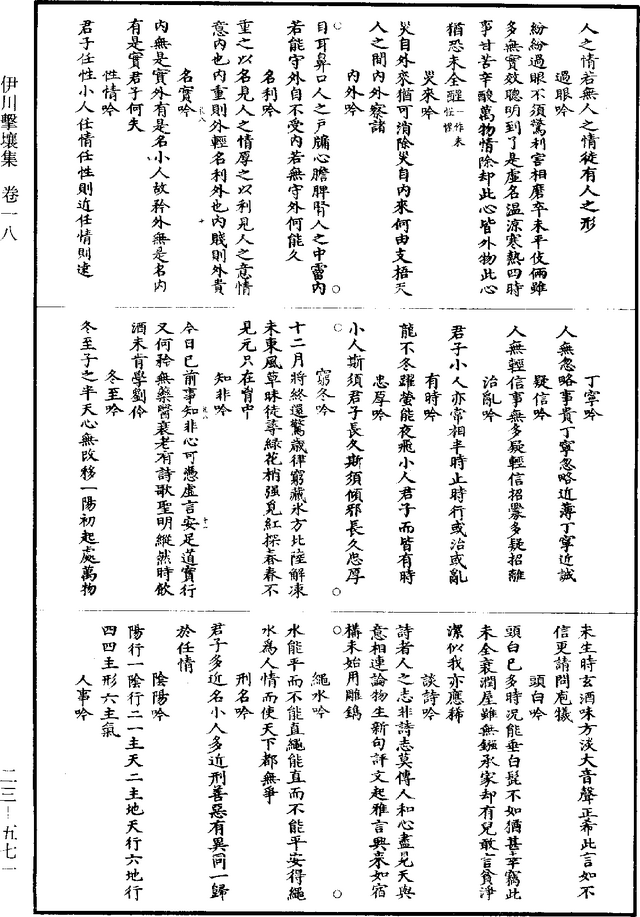 人之情若無人之情徒有人之形
過眼吟
紛紛過眼不須驚利害相磨卒未平伎倆雖
多無實效聰明到了是虛名溫涼寒熱四時
事甘苦辛酸萬物情除却此心皆外物此心
猶恐未全醒一作未惺惺
災來吟
災自外來猶可消除災自內來何由支梧天
人之間內外察諸
內外吟
目耳鼻口人之戶牖心膽脾腎人之中霤內
若能守外自不受內若無守外何能久
名利吟
重之以名見人之情厚之以利見人之意情
意內也內重則外輕名利外也內賤則外貴
名實吟
內無是實外有是名小人故矜外無是名內
有是實君子何失
性情吟
君子任性小人任情任性則近任情則遠
丁寧吟
人無忽略事貴丁寧忽略近薄丁寧近誠
疑信吟
人無輕信事無多疑輕信招釁多疑招離
治亂吟
君子小人亦常相半時止時行或治或亂
有時吟
龍不冬躍螢能夜飛小人君子而皆有時
忠厚吟
小人斯須君子長久斯須傾邪長久忠厚
窮冬吟
十二月將終還驚歲律窮藏冰方北陸解凍
未東風草昧徒尋綠花梢强覓紅探春春不
見元只在胷中
知非吟
今日已前事知非心可憑虛言安足道實行
又何矜無藥醫衰老有詩歌聖明縱然時飲
酒未肯學劉伶
冬至吟
冬至子之半天心無改移一陽初起處萬物
未生時玄酒味方淡大音聲正希此言如不
信更請問庖犧
頭白吟
頭白已多時況能垂白髭不如猶甚幸竊此
未全衰潤屋雖無鏹承家却有兒敢言貧淨
潔似我亦應稀
談詩吟
詩者人之志非詩志莫傳人和心盡見天與
意相連論物生新句評文起雅言興來如宿
構未始用雕鐫
繩水吟
水能平而不能直繩能直而不能平安得繩
水爲人情而使天下都無爭
刑名吟
君子多近名小人多近刑善惡有異同一歸
於任情
陰陽吟
陽行一陰行二一主天二主地天行六地行
四四主形六主氣
人事吟
伊川擊壤集 卷一八
二三—五七一